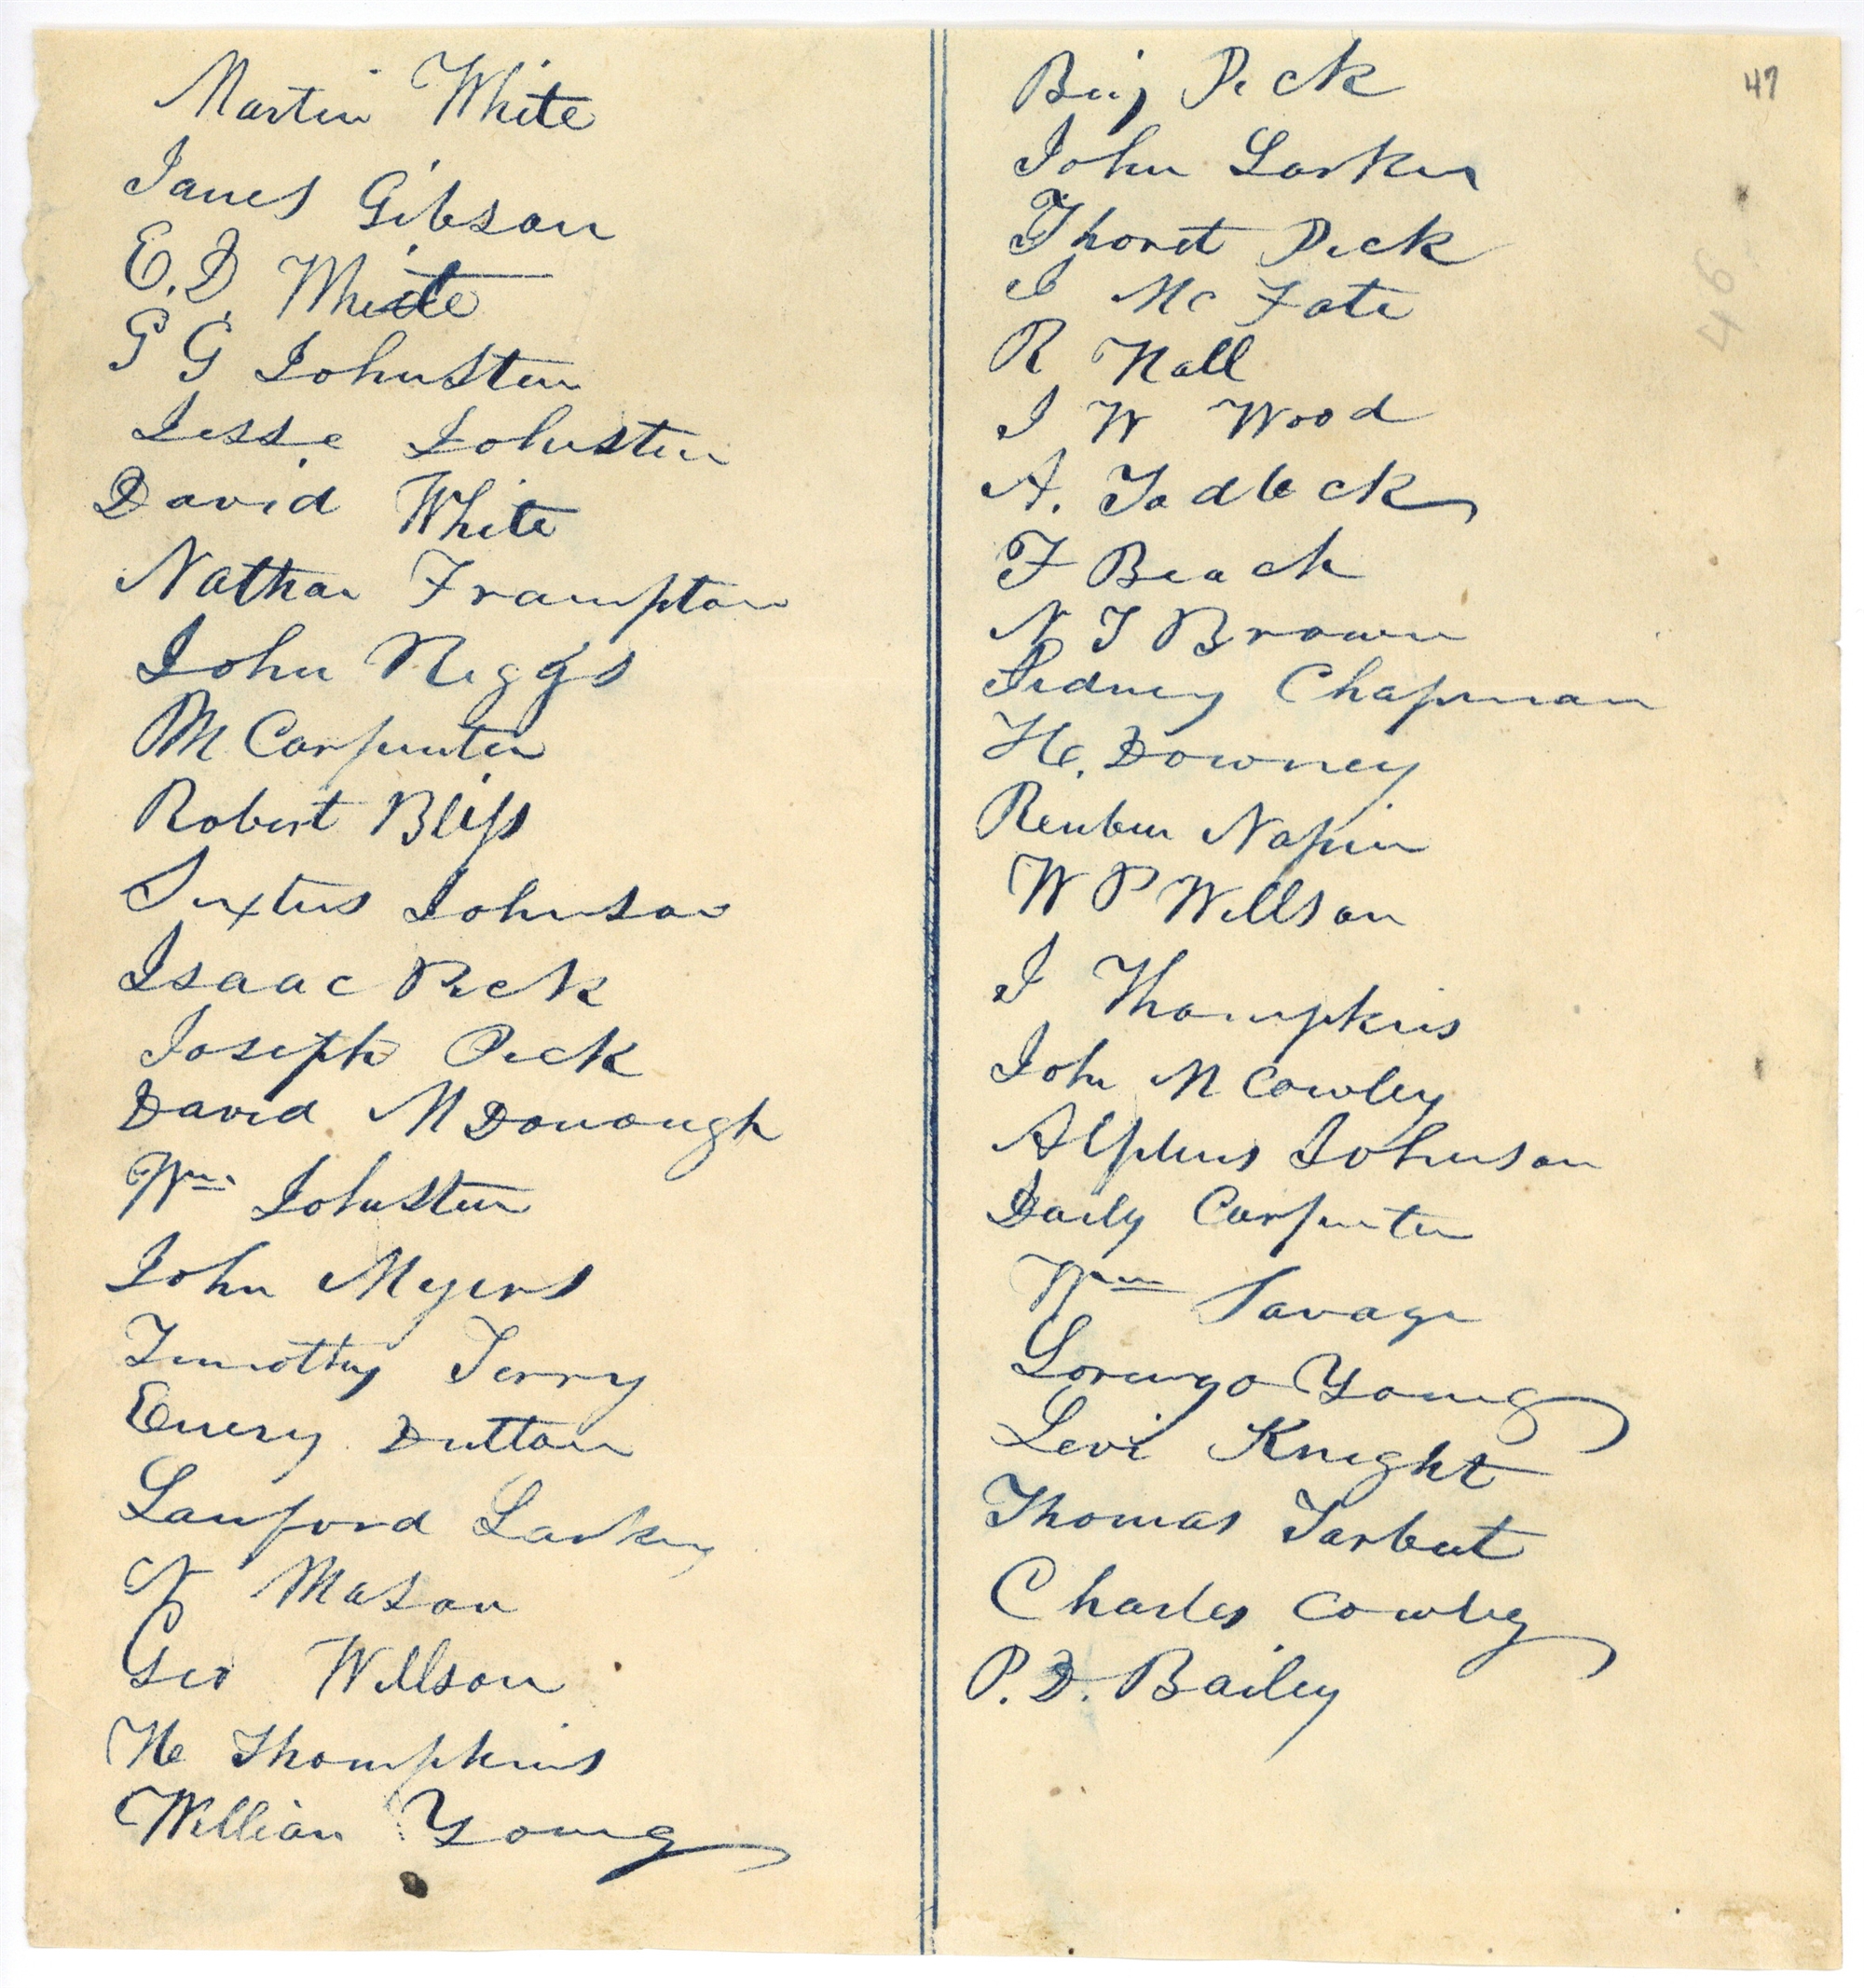 Martin White
James Gibson
E. D. White
G G Johnston
Jesse Johnston
David White
Nathan Frampton
John Riggs
M Carpenter
Robert Bliss
Sextus Johnson
Isaac Peck
Joseph Peck
David M Donough
Wm Johnston
John Myers
Timothy Terry
Emery Dutton
Sanford Larkin
N Mason
Geo Willson
H Thompkins
William Young
Benj Peck
John Larkin
Peck
J Mc Fate
R Nall
J W Wood
A. Tadlock
F Beach
N T Brown
Sidney Chapman
H. Downey
Reuben Napier
W P Willson
J Thompkins
John M Cowley
Alpheus Johnson
Daily Carpenter
Wm Savage
Lorenzo Young
Levi Knight
Thomas Tarbut
Charles Cowley
P. D. Bailey
47